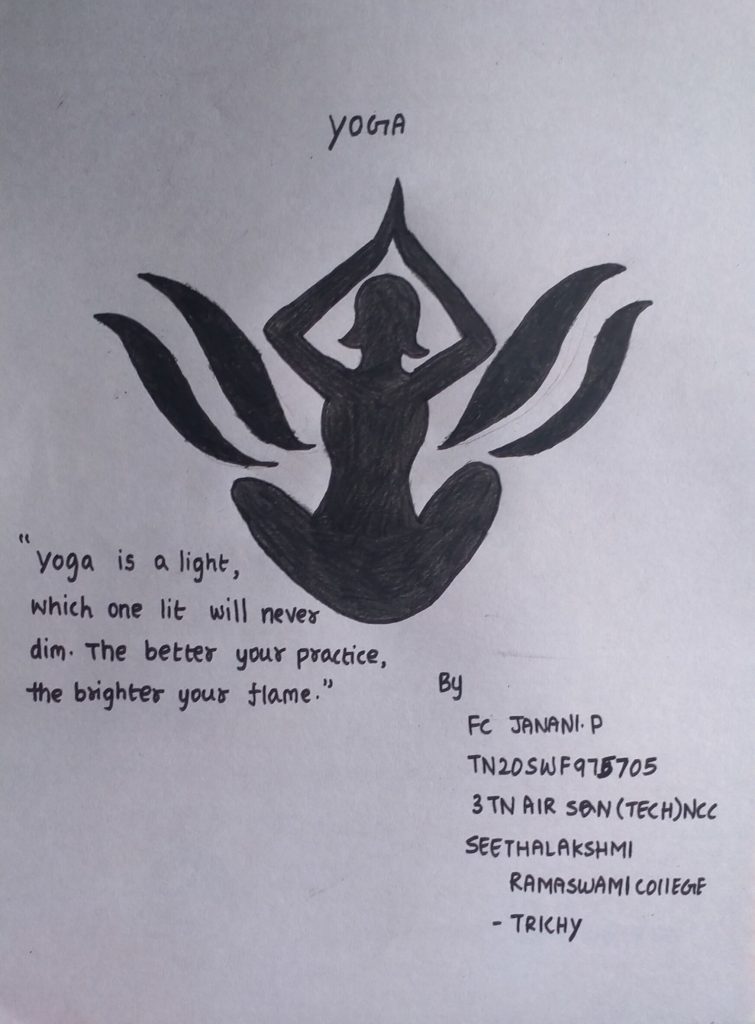 YOGA
"Yoga is a light,
which one lit will never
dim. The better your practice,
the brighter your flame."
By
FC JANANI.P
TN20SWF975705
3 TN AIR SQN (TECH) NCC
SEETHALAKSHMI
RAMASWAMI COllEGE
- TRICHY